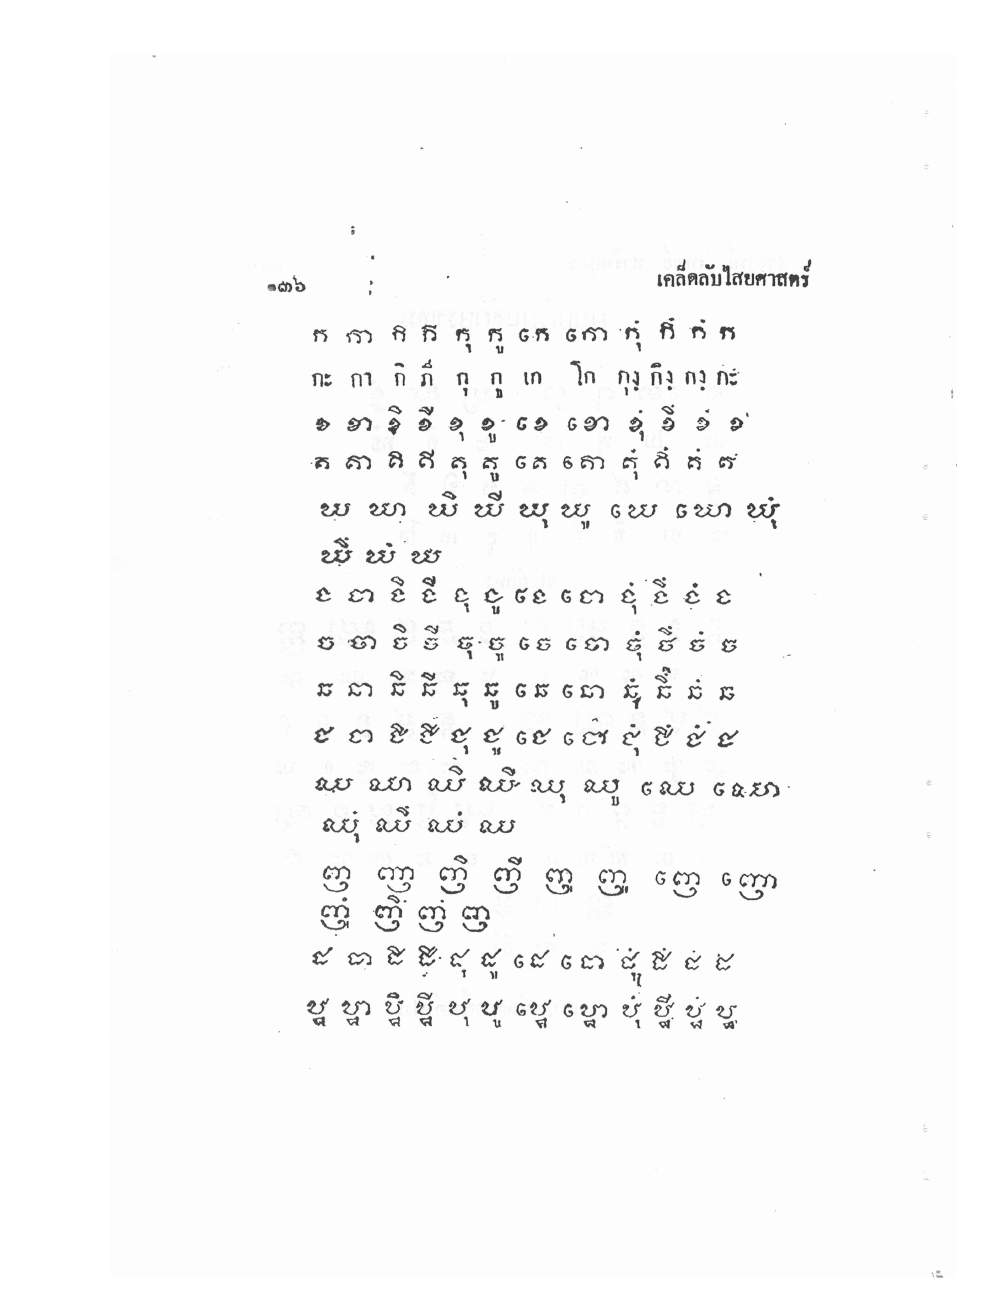 ๑๓๖ เคล็ดลับไสยศาสตร์
ក កា កិ កី កុ កូ កេ កោ កុំ កឹ កំ ក
กะ กา กิ กี กุ กู เก โก กุงฺ กิงฺ กงฺ กะ
ខ ខា ខិ ខី ខុ ខូ ខេ ខោ ខុំ ខឹ ខំ ខ
គ គា គិ គី គុ គូ គេ គោ គុំ គឹ គំ គ
ឃ ឃា ឃិ ឃី ឃុ ឃូ ឃេ ឃោ ឃុំ
ឃឹ ឃំ ឃ
ង ងា ងិ ងី ងុ ងូ ងេ ងោ ងុំ ងឹ ងំ ង
ច ចា ចិ ចី ចុ ចូ ចេ ចោ ចុំ ចឹ ចំ ច
ឆ ឆា ឆិ ឆី ឆុ ឆូ ឆេ ឆោ ឆុំ ឆឹ ឆំ ឆ
ជ ជា ជិ ជី ជុ ជូ ជេ ជោ ជុំ ជឹ ជំ ជ
ឈ ឈា ឈិ ឈី ឈុ ឈូ ឈេ ឈោ
ឈុំ ឈឹ ឈំ ឈ
ញ ញា ញិ ញី ញុ ញូ ញេ ញោ
ញុំ ញឹ ញំ ញ
ដ ដា ដិ ដី ដុ ដូ ដេ ដោ ដុំ ដឹ ដំ ដ
ឋ ឋា ឋិ ឋី ឋុ ឋូ ឋេ ឋោ ឋុំ ឋឹ ឋំ ឋ